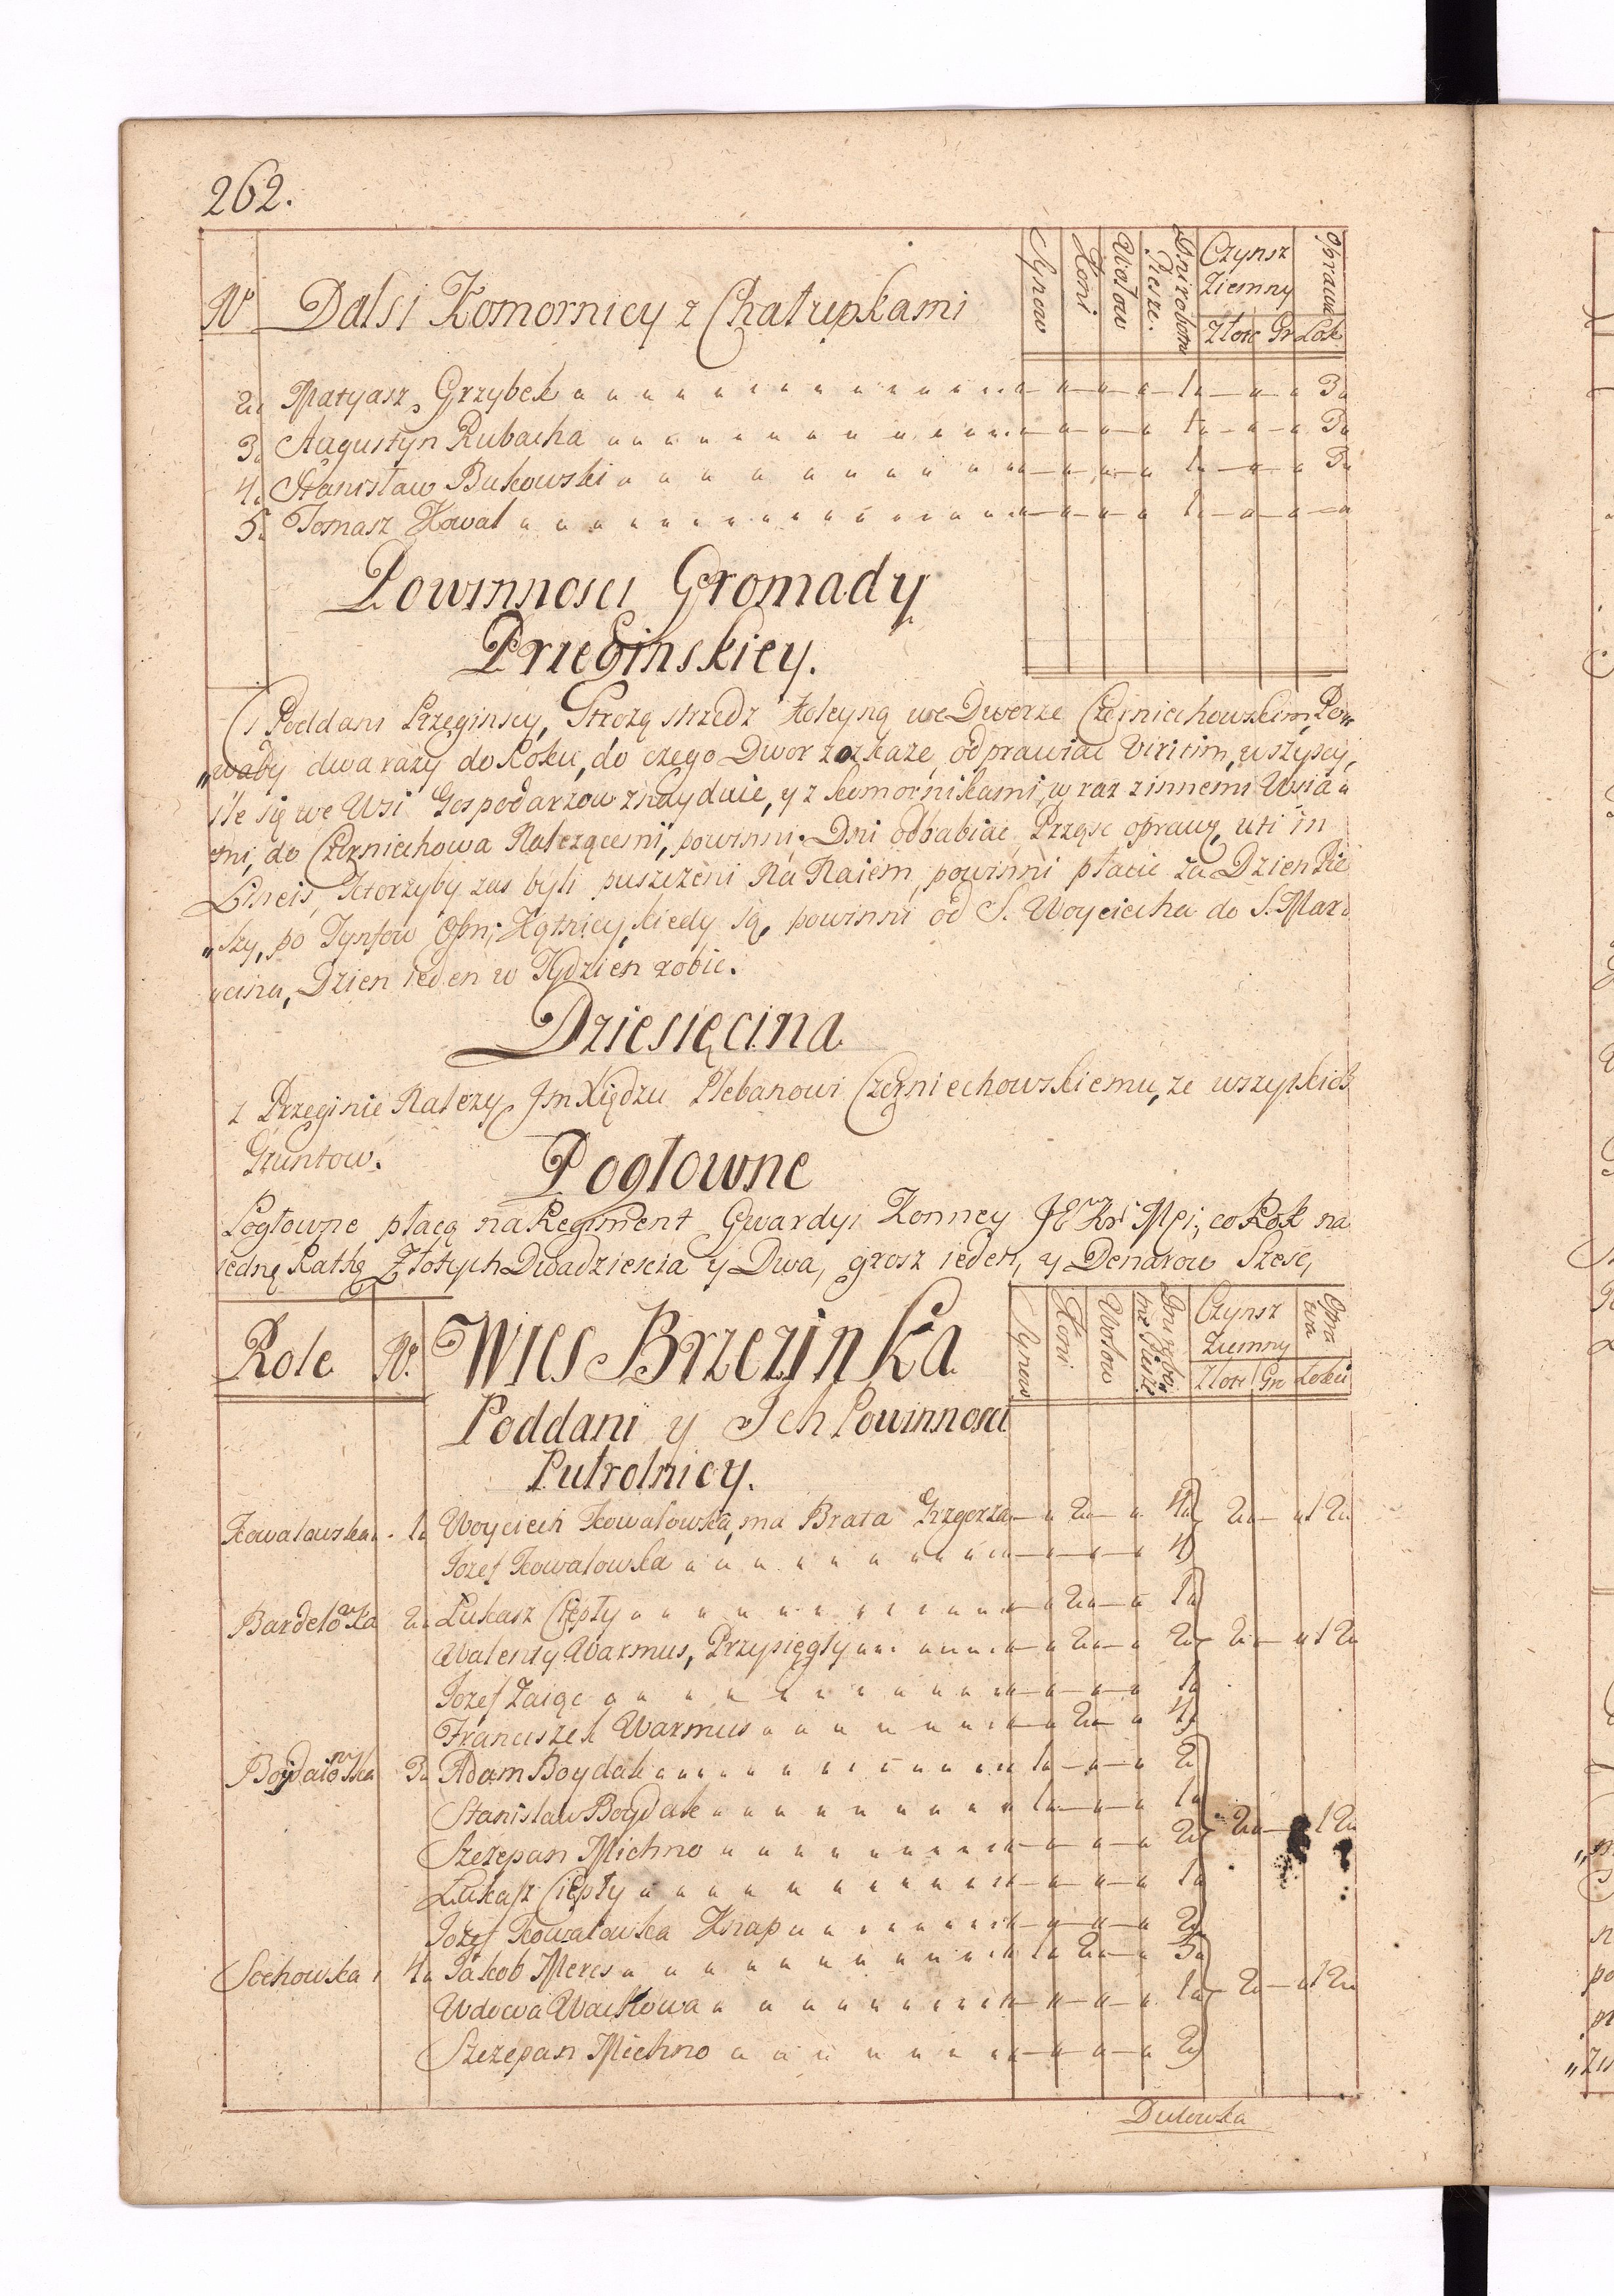 262.
Nr Dalsi Komornicy z Chałupkami Synow Koni Wołow Dni robotn Piesze. Czynsz Ziemny Złote Gr Oprawa Łok
2. Matyasz Grzybek 1 3
3. Augustyn Rubacha 1 3
4. Stanisław Bukowski 1 3
5. Tomasz Kowal 1
Powinnosci Gromady
Przeginskiey.
Ci Poddani Przeginscy, Strozą strzedz Koleyną we Dworze Czernichowskim, Po„
„waby dwa razy do Roku, do czego Dwor rozkaze, odprawiac viritim, wszyscy,
ile się we Wsi Gospodarzow znayduie, y z komornikami, wraz z innemi Wsia„
mi, do Czernichowa Nalezącemi, powinni. Dni odbabiac, Przęsc oprawę, uti in
Lineis, Ktorzyby zas byli puszczeni Na Naiem, powinni płacic za Dzien Pie
„szy, po Tynfow Osm; Kątnicy, kiedy są, powinni od S. Woyciecha do S. Mar
„cina, Dzien ieden w Tydzien robic.
Dziesięcina
z Przeginie Nalezy Jm Xiędzu Plebanowi Czerniechowskiemu, ze wszytkich
Gruntow.
Pogłowne
Pogłowne płacą na Regiment Gwardyi Konney JE Kr Mci, co Rok na
iednę Rathę Złotych Dwadziescia y Dwa, grosz ieden, y Denarow Szesc,
Role Nr. Wies Brzezinka Synow Koni Wołow Dni robo Czynsz Ziemny Złote Gr Opra wa Łokci
Poddani y Ich Powinnosci
Pułrolnicy.
Kowalowska 1 Woyciech Kowalowka, ma Brata Grzegorza 2 4 2 12
Jozef Kowalowka 4
Bardelowka 2 Łukasz Ciepły 2 1
Walenty Warmus, Przysięgły 2 2 2 12
Jozef Zaiąc 1
Franciszek Warmus 2 4
Boydałowska 3 Adam Boydak 1 2
Stanisław Boydak 1 1
Szczepan Michno 2 2 12
Łukasz Ciepły 1
Jozef Kowalowka Knap 2
Sochowska 4 Jakob Meres 1 2 3
Wdowa Waikowa 1 2 12
Szczepan Michno 2
Dulowka